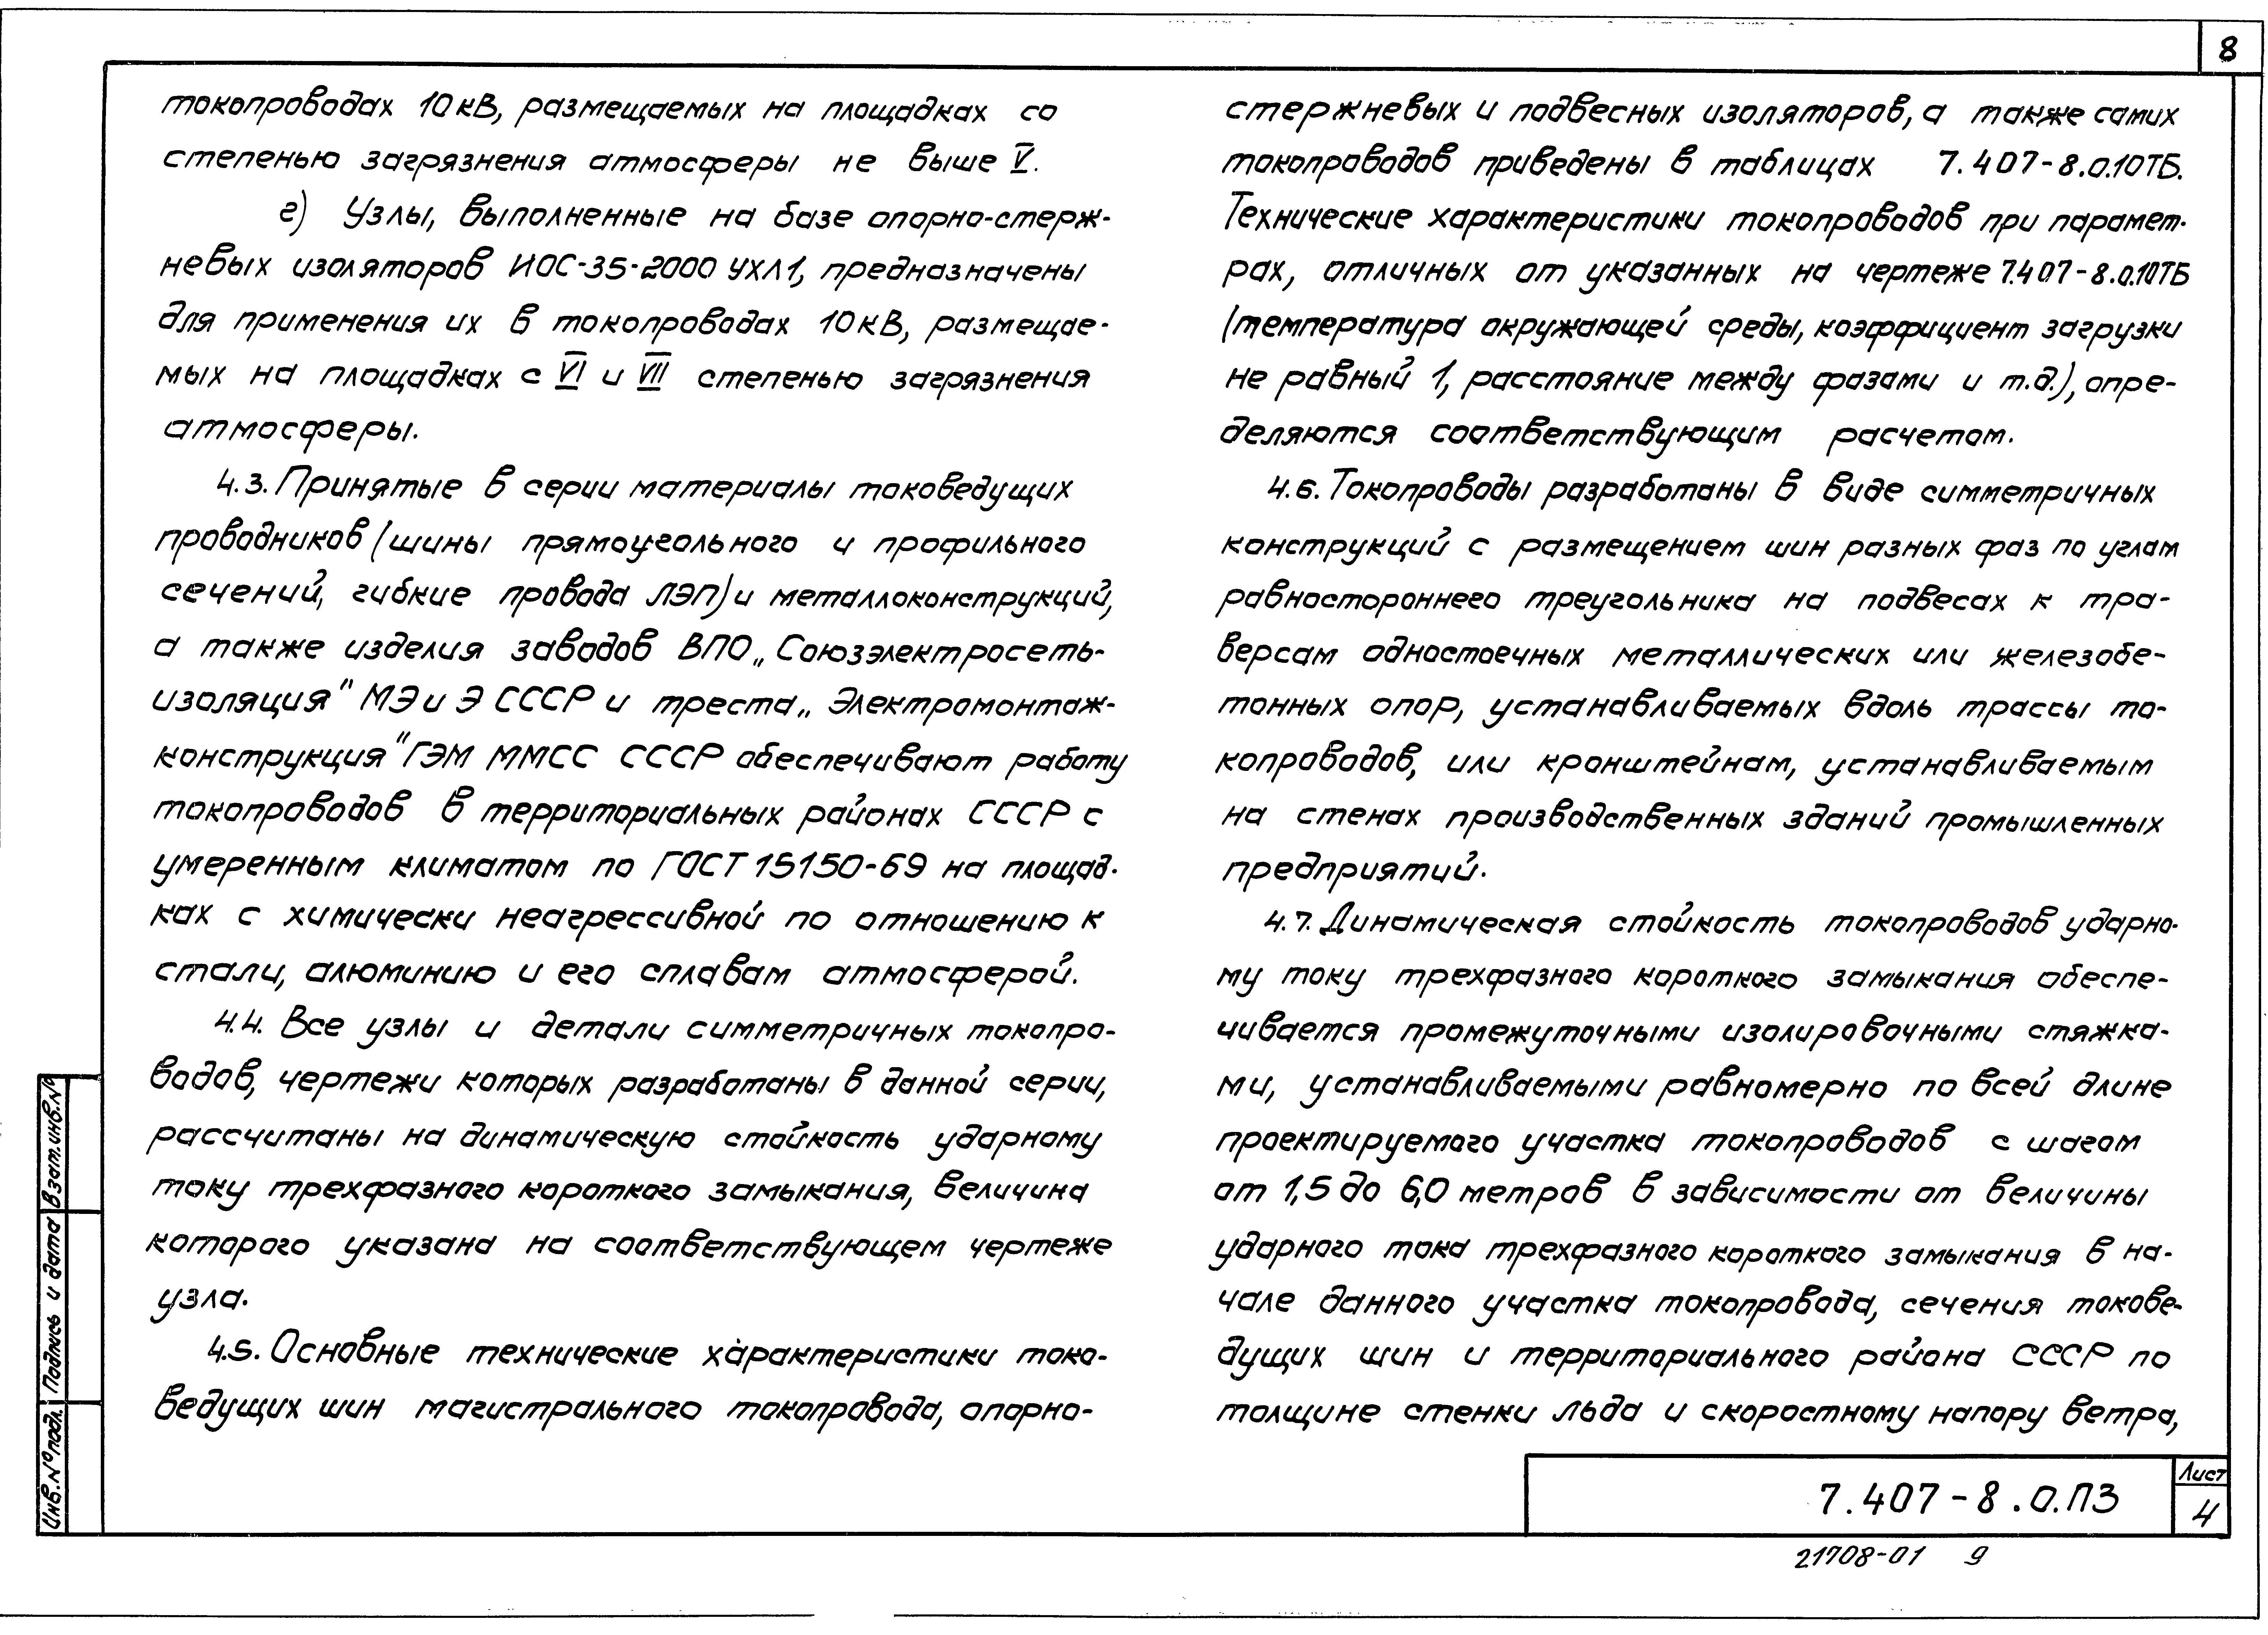 8
токопроводах 10кВ, размещаемых на площадках со
степенью загрязнения атмосферы не выше V.
г) Узлы, выполненные на базе опорно-стерж-
невых изоляторов ИОС-35-2000 УХЛ1, предназначены
для применения их в токопроводах 10кВ, размещае-
мых на площадках с VI и VII степенью загрязнения
атмосферы.
4.3. Принятые в серии материалы токоведущих
проводников (шины прямоугольного и профильного
сечений, гибкие провода ЛЭП) и металлоконструкций,
а также изделия заводов ВПО „Союзэлектросеть-
изоляция" МЭ и Э СССР и треста „Электромонтаж-
конструкция" ГЭМ ММСС СССР обеспечивают работу
токопроводов в территориальных районах СССР с
умеренным климатом по ГОСТ 15150-69 на площад-
ках с химически неагрессивной по отношению к
стали, алюминию и его сплавам атмосферой.
4.4. Все узлы и детали симметричных токопро-
водов, чертежи которых разработаны в данной серии,
рассчитаны на динамическую стойкость ударному
току трехфазного короткого замыкания, величина
которого указана на соответствующем чертеже
узла.
4.5. Основные технические характеристики токо-
ведущих шин магистрального токопровода, опорно-
стержневых и подвесных изоляторов, а также самих
токопроводов приведены в таблицах 7.407-8.0.10ТБ.
Технические характеристики токопроводов при парамет-
рах, отличных от указанных на чертеже 7.407-8.0.10ТБ
(температура окружающей среды, коэффициент загрузки
не равный 1, расстояние между фазами и т.д.), опре-
деляются соответствующим расчетом.
4.6. Токопроводы разработаны в виде симметричных
конструкций с размещением шин разных фаз по углам
равностороннего треугольника на подвесах к тра-
версам одностоечных металлических или железобе-
тонных опор, устанавливаемых вдоль трассы то-
копроводов, или кронштейнам, устанавливаемым
на стенах производственных зданий промышленных
предприятий.
4.7. Динамическая стойкость токопроводов ударно-
му току трехфазного короткого замыкания обеспе-
чивается промежуточными изолировочными стяжка-
ми, устанавливаемыми равномерно по всей длине
проектируемого участка токопроводов с шагом
от 1,5 до 6,0 метров в зависимости от величины
ударного тока трехфазного короткого замыкания в на-
чале данного участка токопровода, сечения токове-
дущих шин и территориального района СССР по
толщине стенки льда и скоростному напору ветра,
Взам.инв.№
Подпись и дата
Инв.№ подл.
7.407-8.0.ПЗ
Лист
4
21708-01 9